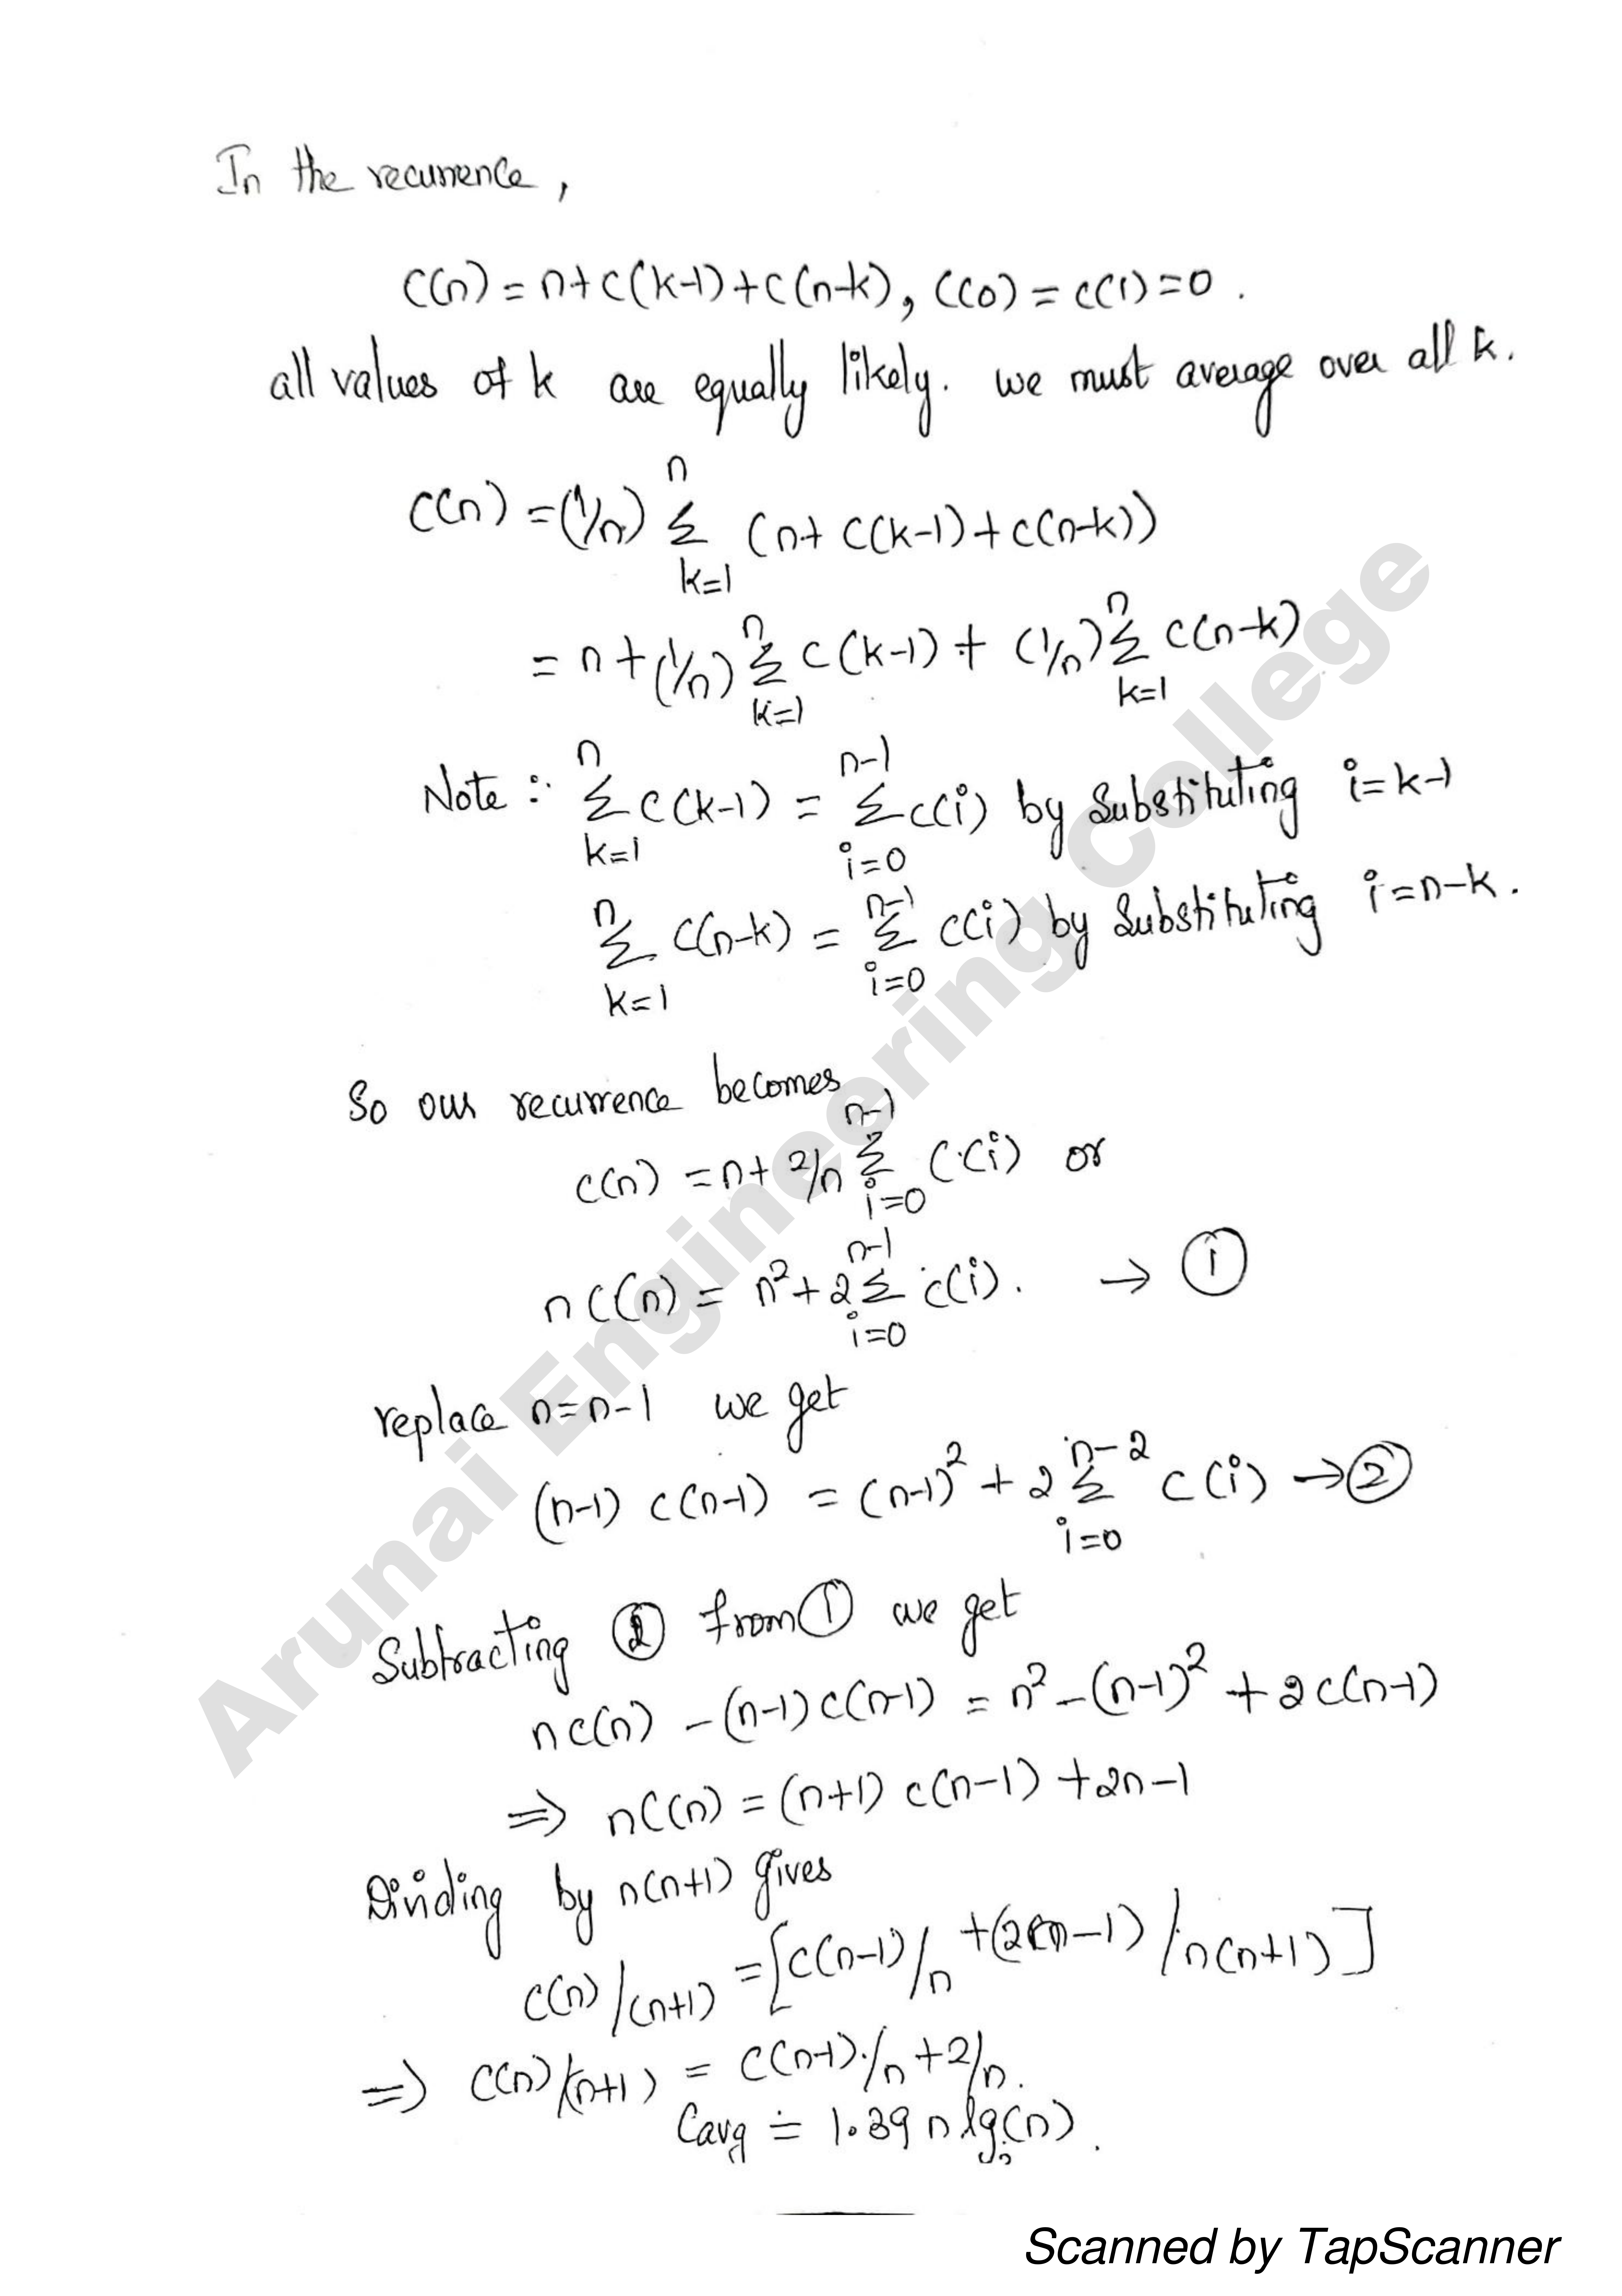 In the recurrence,
C(n) = n+c(k-1)+c(n-k), c(0) = c(1)=0.
all values of k are equally likely. we must average over all k.
n
C(n) = (1/n) Σ (n+ c(k-1)+c(n-k))
k=1
n n
= n+(1/n) Σ c(k-1) + (1/n) Σ c(n-k)
k=1 k=1
n n-1
Note :- Σ c(k-1) = Σ c(i) by Substituting i=k-1
k=1 i=0
n n-1
Σ c(n-k) = Σ c(i) by Substituting i=n-k.
k=1 i=0
So our recurrence becomes
n-1
c(n) = n+ 2/n Σ c(i) or
i=0
n-1
n c(n) = n²+2 Σ c(i). → ①
i=0
replace n=n-1 we get
n-2
(n-1) c(n-1) = (n-1)² + 2 Σ c(i) → ②
i=0
Subtracting ② from ① we get
nc(n) -(n-1)c(n-1) = n²-(n-1)² +2c(n-1)
⇒ nc(n) = (n+1) c(n-1) +2n-1
Dividing by n(n+1) gives
c(n)/(n+1) = [c(n-1)/n +(2(n-1)/n(n+1)]
⇒ c(n)/(n+1) = c(n-1)/n +2/n.
Cavg ≐ 1.39 n lg(n).
Arunai Engineering College
Scanned by TapScanner